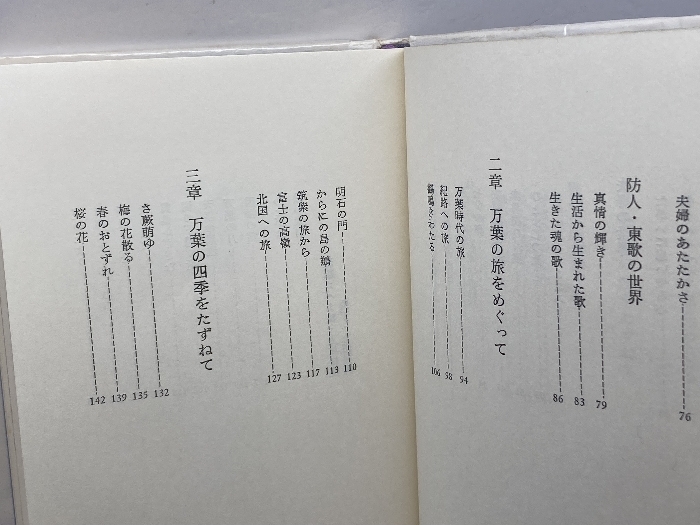 夫婦のあたたかさ 76
防人・東歌の世界
真情の輝き 79
生活から生まれた歌 83
生きた魂の歌 86
二章 万葉の旅をめぐって
万葉時代の旅 94
紀路への旅 98
鶴鳴きわたる 106
明石の門 110
からにの島の鵜 113
筑紫の旅から 117
富士の高嶺 123
北国への旅 127
三章 万葉の四季をたずねて
さ蕨萌ゆ 132
梅の花散る 135
春のおとずれ 139
桜の花 142